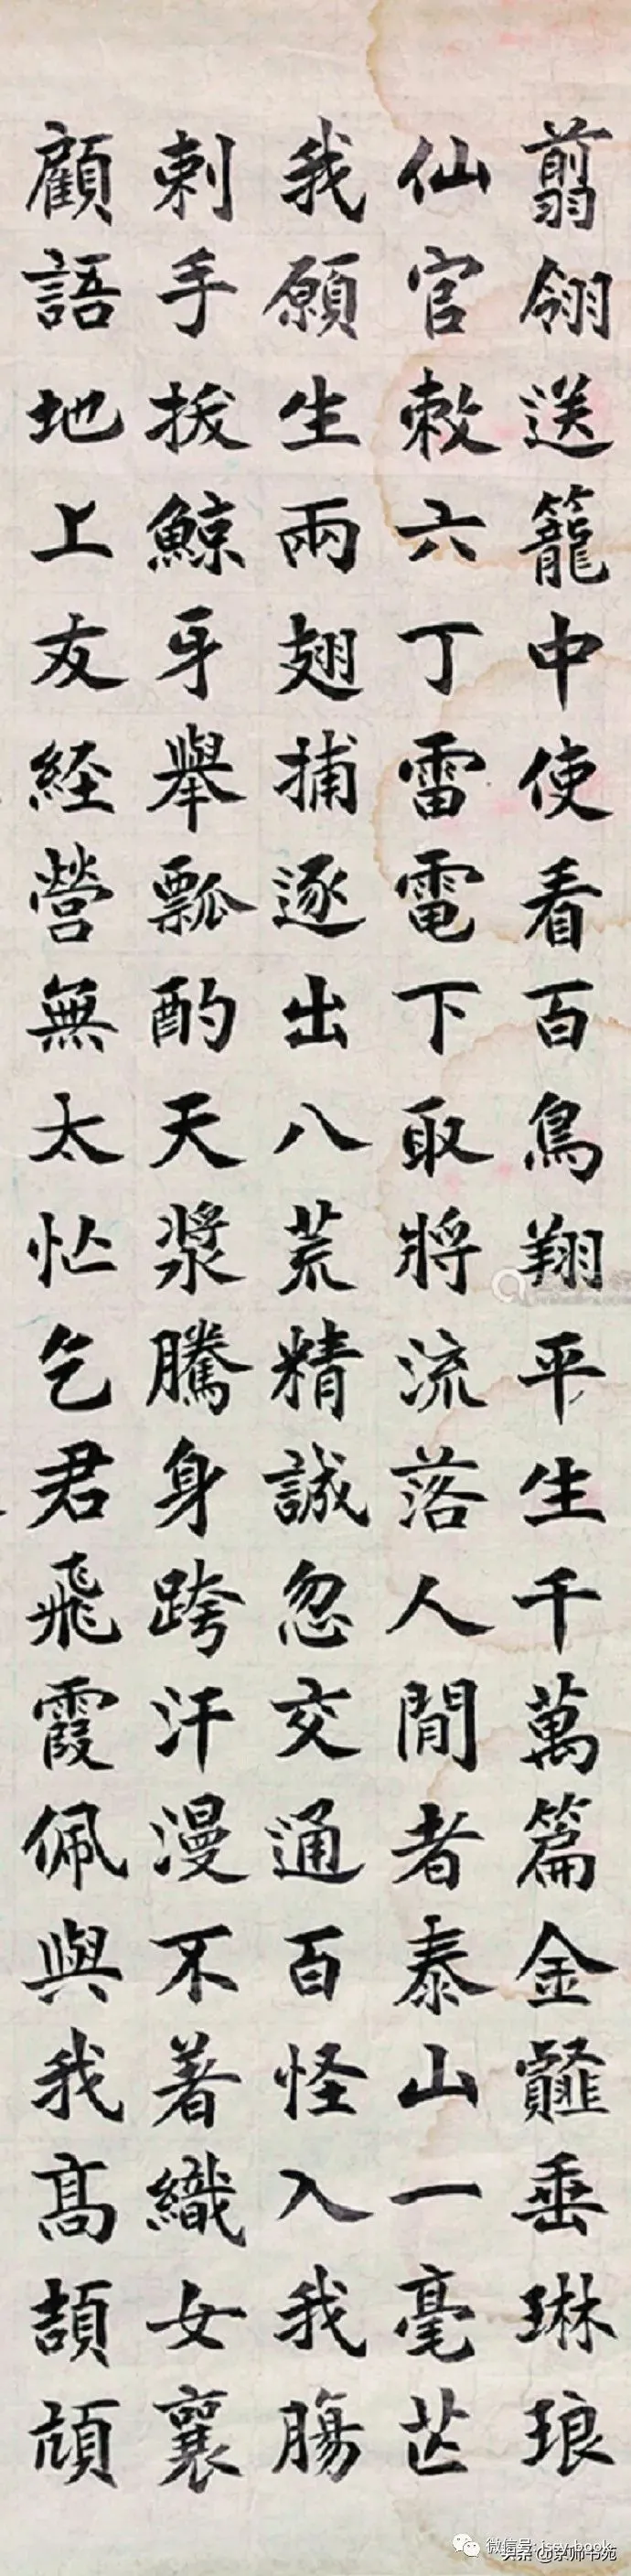 翦翎送籠中使看百鳥翔平生千萬篇金薤垂琳琅
仙官敕六丁雷電下取將流落人間者泰山一毫芒
我願生兩翅捕逐出八荒精誠忽交通百怪入我腸
刺手拔鯨牙舉瓢酌天漿騰身跨汗漫不著織女襄
顧語地上友經營無太忙乞君飛霞佩與我高頡頏
微信号: jssy-book
头条@京师书苑